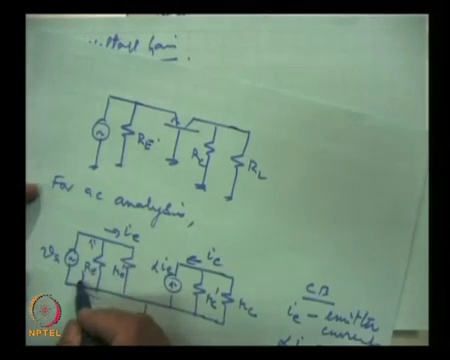 ...oltage Gain.
RE
Rc
RL
For ac analysis,
→ ie
← ic
vs
RE
re
αie
rc'
rc
CB
ie – emitter
current
αi
NPTEL